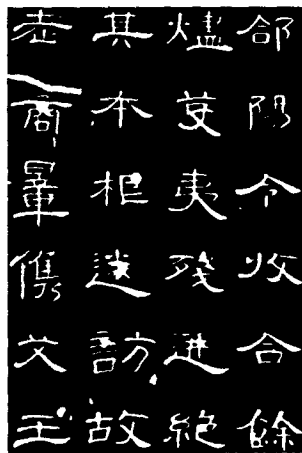 郃陽令收合餘
燼芟夷殘迸絕
其本根遂訪故
老商量儁艾王